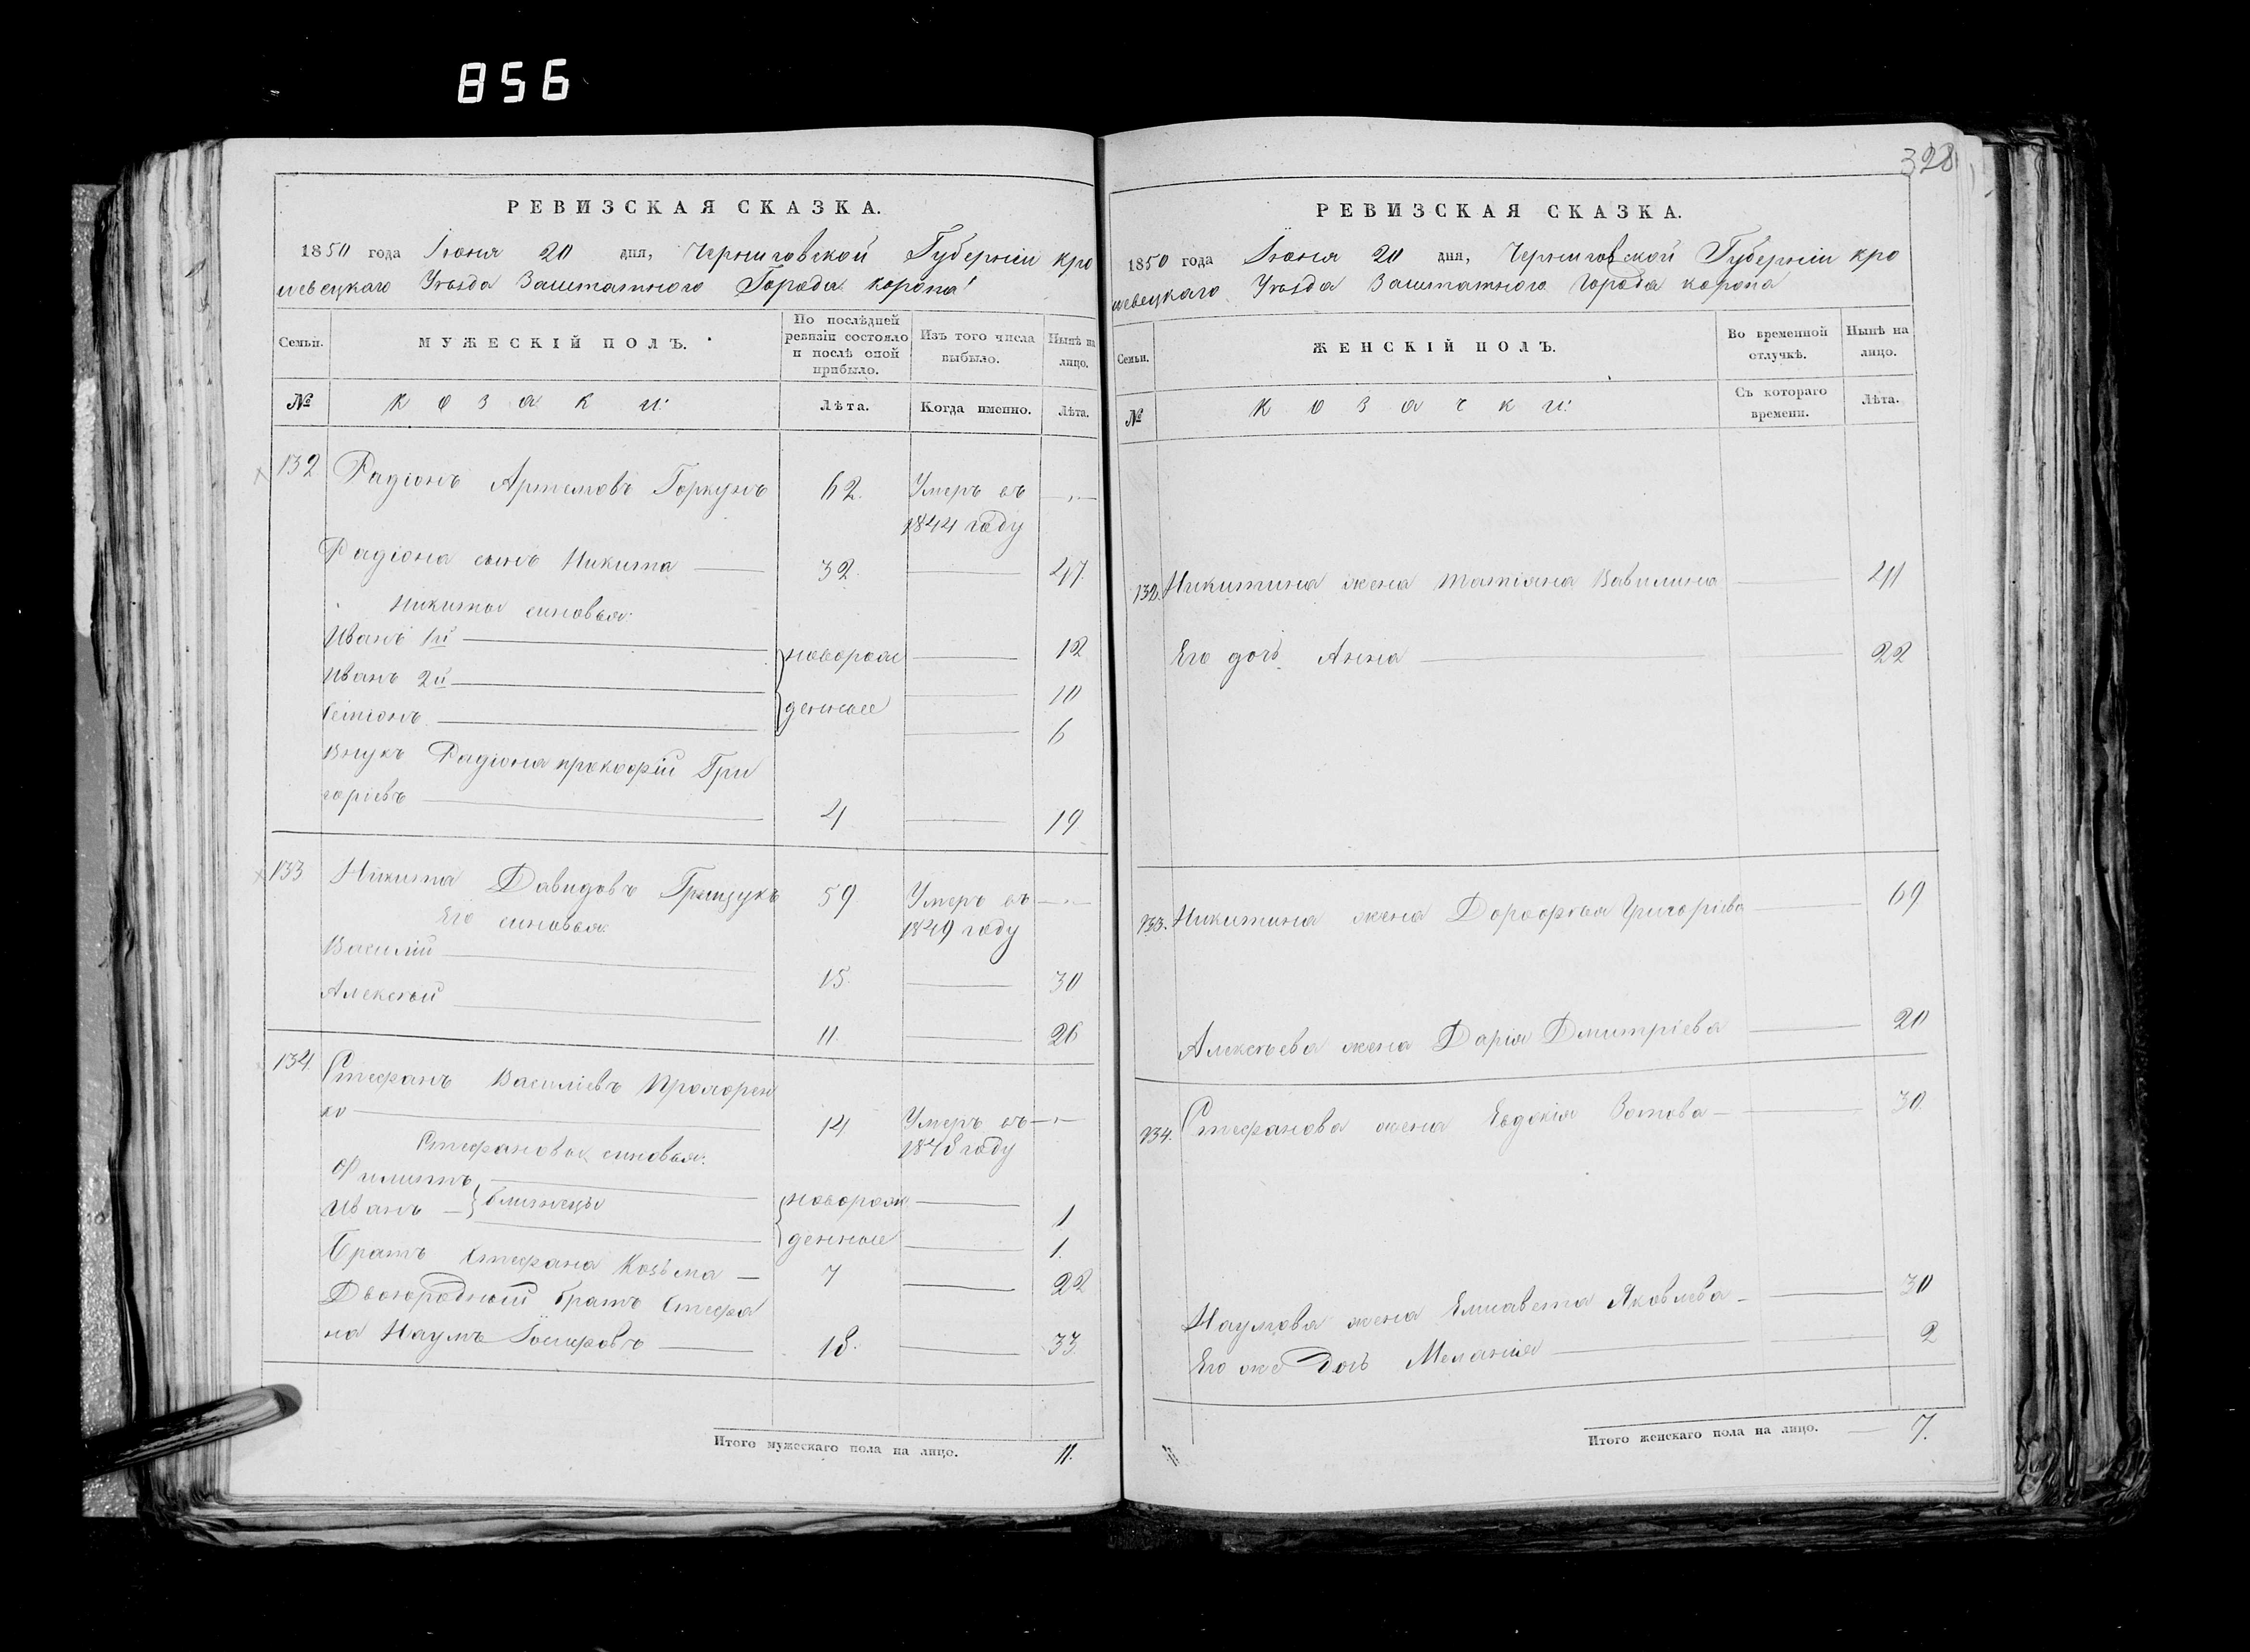 856
328
РЕВИЗСКАЯ СКАЗКА.
1850 года Іюня 20 дня, Черниговской Губерніи кро
левецкаго Уѣзда Заштатного Города коропа
Семьи.
МУЖЕСКІЙ ПОЛЪ.
По послѣдней ревизіи состояло и послѣ оной прибыло.
Изъ того числа выбыло.
Нынѣ на лицо.
№
козаки:
Лѣта.
Когда именно.
Лѣта.
132 Радіонъ Артемовъ Горкунъ 62. Умеръ въ
1844 году
Радіона сынъ Никита 32. 47.
Никиты синовья:
Иванъ 1й новорож 12
Иванъ 2й 10
денные
6
Внукъ Радіона прокофій Гри
горіевъ 4 19
133 Никита Давидовъ Грищукъ 59 Умеръ въ
Его синовья: 1849 году
Василій 15. 30
Алексѣй 11. 26
134. Стефанъ Василіевъ
ко 14 Умеръ въ
1848 году
Стефановы синовья:
Филипъ новорож 1
Иванъ близнецы денные 1.
Братъ Стефана Козьма 7 22
Двоюродный братъ Стефа
на Наумъ Іосифовъ 18. 33.
Итого мужескаго пола на лицо. 11.
РЕВИЗСКАЯ СКАЗКА.
1850 года Іюня 20 дня, Черниговской Губерніи кро
левецкаго Уѣзда Заштатного Города коропа
Семьи.
ЖЕНСКІЙ ПОЛЪ.
Во временной отлучкѣ.
Нынѣ на лицо.
№
козачки:
Съ котораго времени.
Лѣта.
132. Никитина жена Татіяна Вавилина 41
Его дочь Анна 22
133. Никитина жена Дорофѣя Григоріева 69
Алексѣева жена Дарія Дмитріева 20
134. Стефанова жена Евдокія Зотова 30.
Наумова жена Елисавета Яковлева 30
Его же Дочь Меланія 2
Итого женскаго пола на лицо. 7.